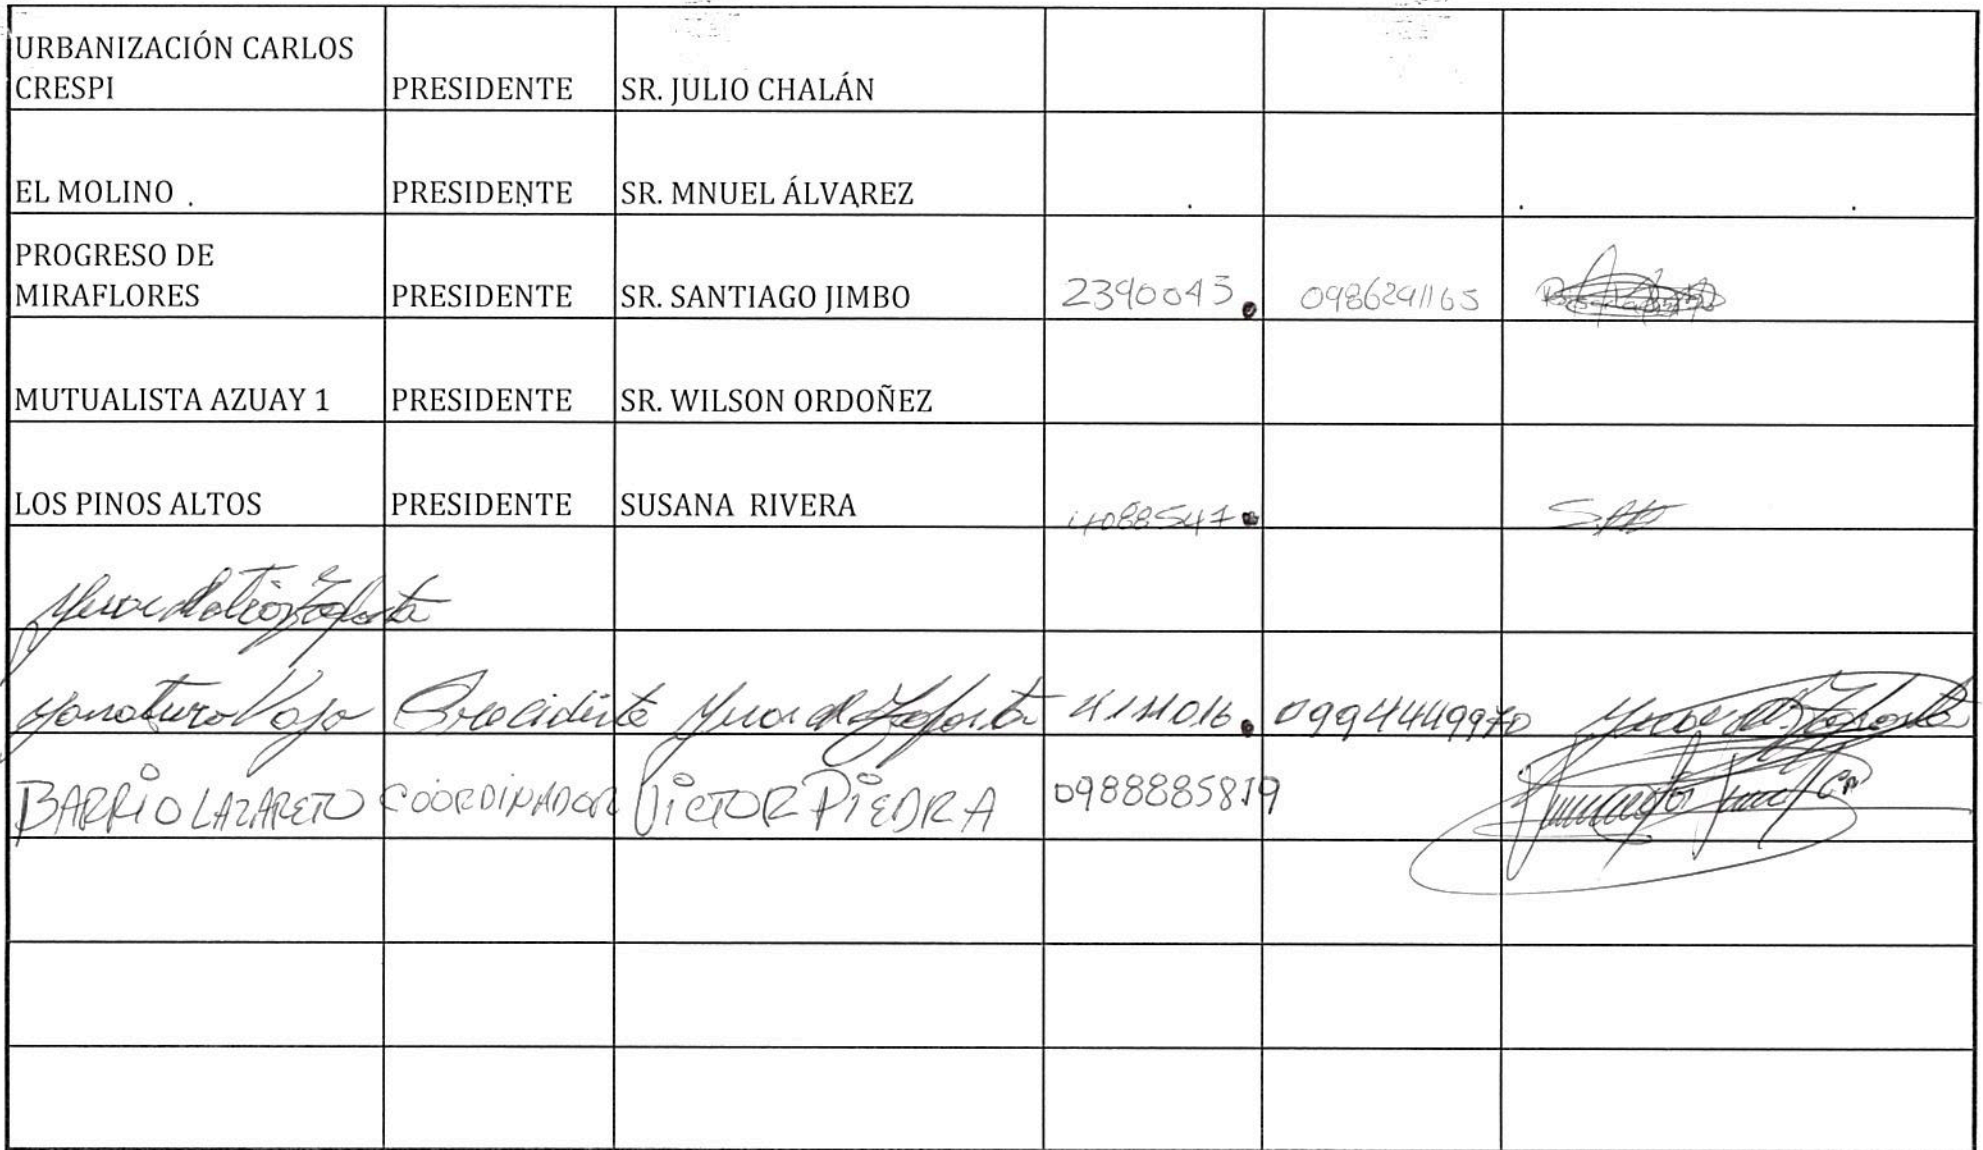 URBANIZACIÓN CARLOS
CRESPI PRESIDENTE SR. JULIO CHALÁN
EL MOLINO . PRESIDENTE SR. MNUEL ÁLVAREZ
PROGRESO DE
MIRAFLORES PRESIDENTE SR. SANTIAGO JIMBO 2390043 0986291165
MUTUALISTA AZUAY 1 PRESIDENTE SR. WILSON ORDOÑEZ
LOS PINOS ALTOS PRESIDENTE SUSANA RIVERA 4088547
0994449970
BARRIO LAZARETO COORDINADOR VICTOR PIEDRA 0988885819